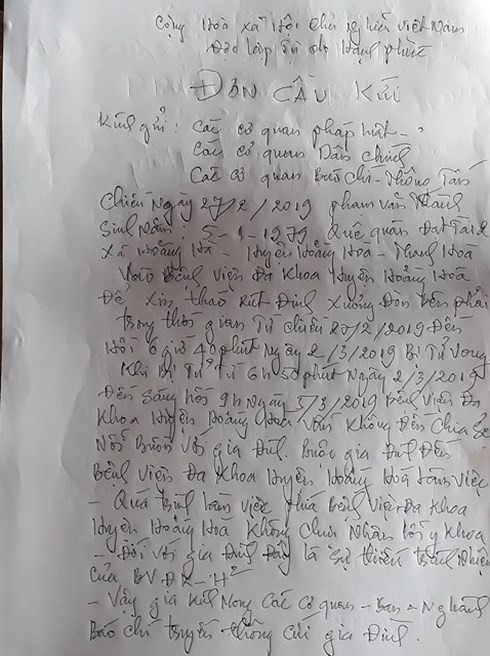 Cộng Hoà xã Hội chủ nghĩa việt Nam
Độc lập Tự do Hạnh phúc
ĐƠN CẦU KỨU
Kính gửi: Các cơ quan pháp luật -
Các cơ quan Dân chính
Các cơ quan Báo chí - Thông Tấn
Chiều Ngày 27/2/2019 phạm văn Thành
Sinh Năm: 5-1-1979 Quê quán Đạt Tài 2
xã Hoằng Hà - Huyện Hoằng Hoá - Thanh Hoá
Vào Bệnh Viện Đa Khoa Huyện Hoằng Hoá
Để xin tháo Rút Đinh xương Đòn bên phải
trong thời gian Từ chiều 27/2/2019 Đến
Hồi 6 giờ 40 phút Ngày 2/3/2019 Bị Tử Vong
Khi Bị Tử Từ 6h 50 phút Ngày 2/3/2019
Đến Sáng hồi 9h Ngày 5/3/2019 Bệnh Viện Đa
Khoa Huyện Hoằng Hoá Vẫn Không Đến Chia Sẻ
Nỗi Buồn Với gia Đình. Buộc gia Đình Đến
Bệnh Viện Đa Khoa Huyện Hoằng Hoá Làm Việc
- Quá trình làm việc phía Bệnh Viện Đa Khoa
Huyện Hoằng Hoá Không Chịu Nhận lỗi y Khoa
- Đối Với gia Đình Đây là Sự thiếu trách Nhiệm
của BV ĐK-H²
- Vậy gia Kính Mong Các cơ quan - Ban - Nghành
Báo chí truyền thông Cứu gia Đình.